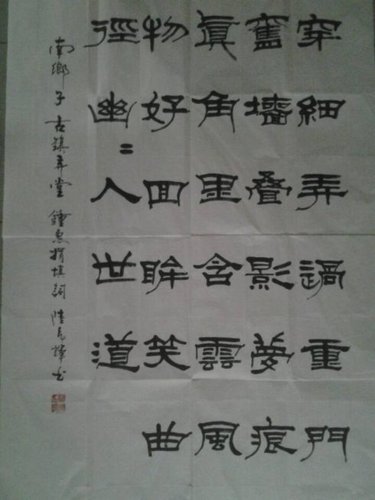 穿細弄過重門
舊墻疊影夢痕
眞角里含雲風
物好回眸笑曲
徑幽=人世道
南鄉子 古鎮弄堂 填詞 書